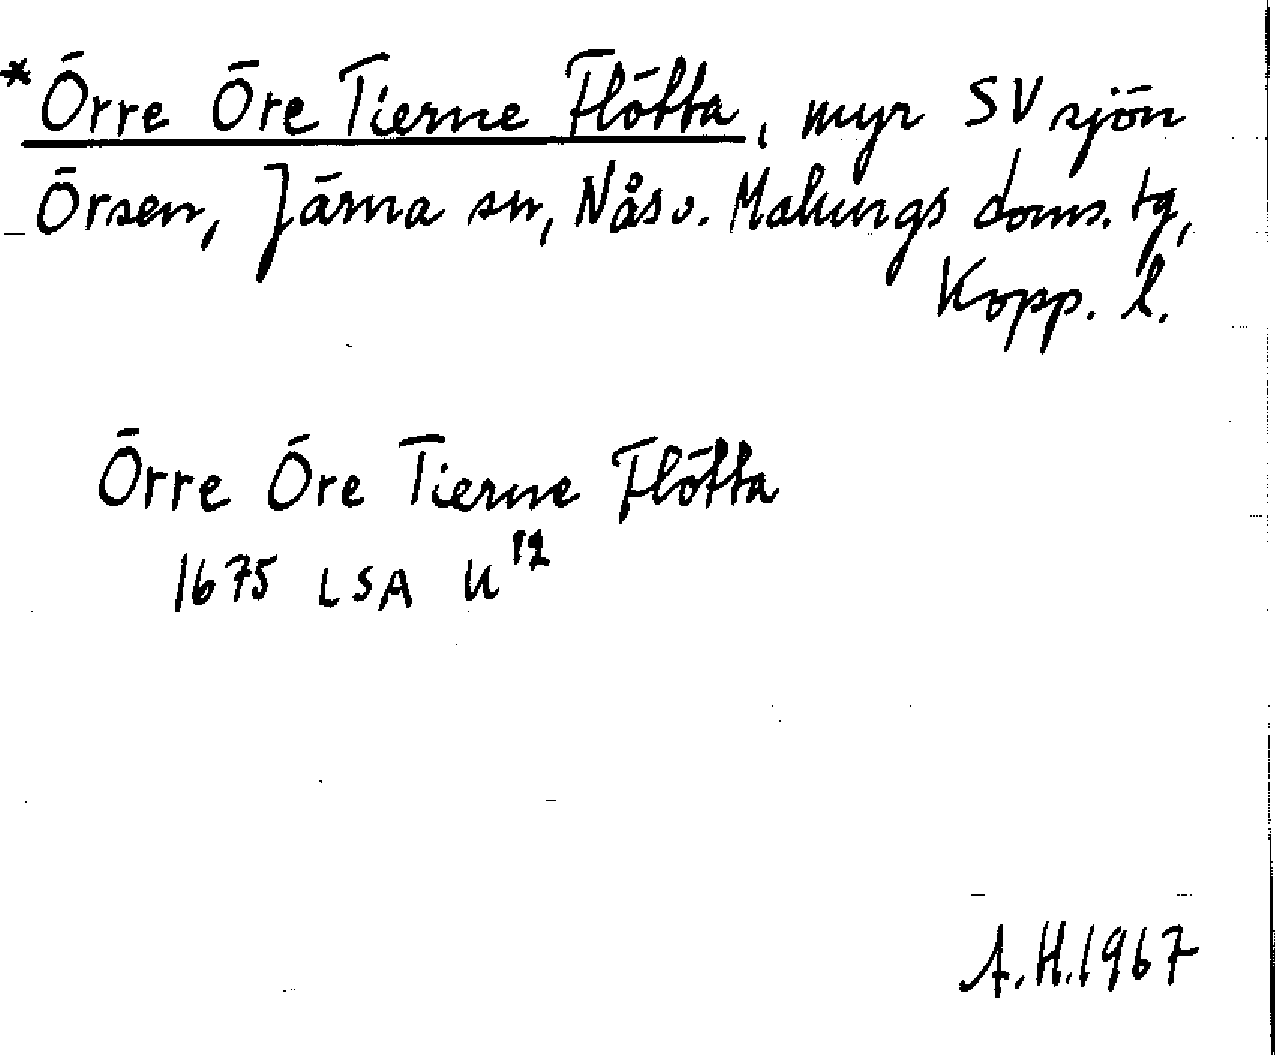 *Örre Öre Tierne Flötta, myr SV sjön
Örsen, Järna sn, Nås o. Malungs doms. tg,
Kopp. l.
Örre Öre Tierne Flötta
1675 LSA U¹²
A.H.1967